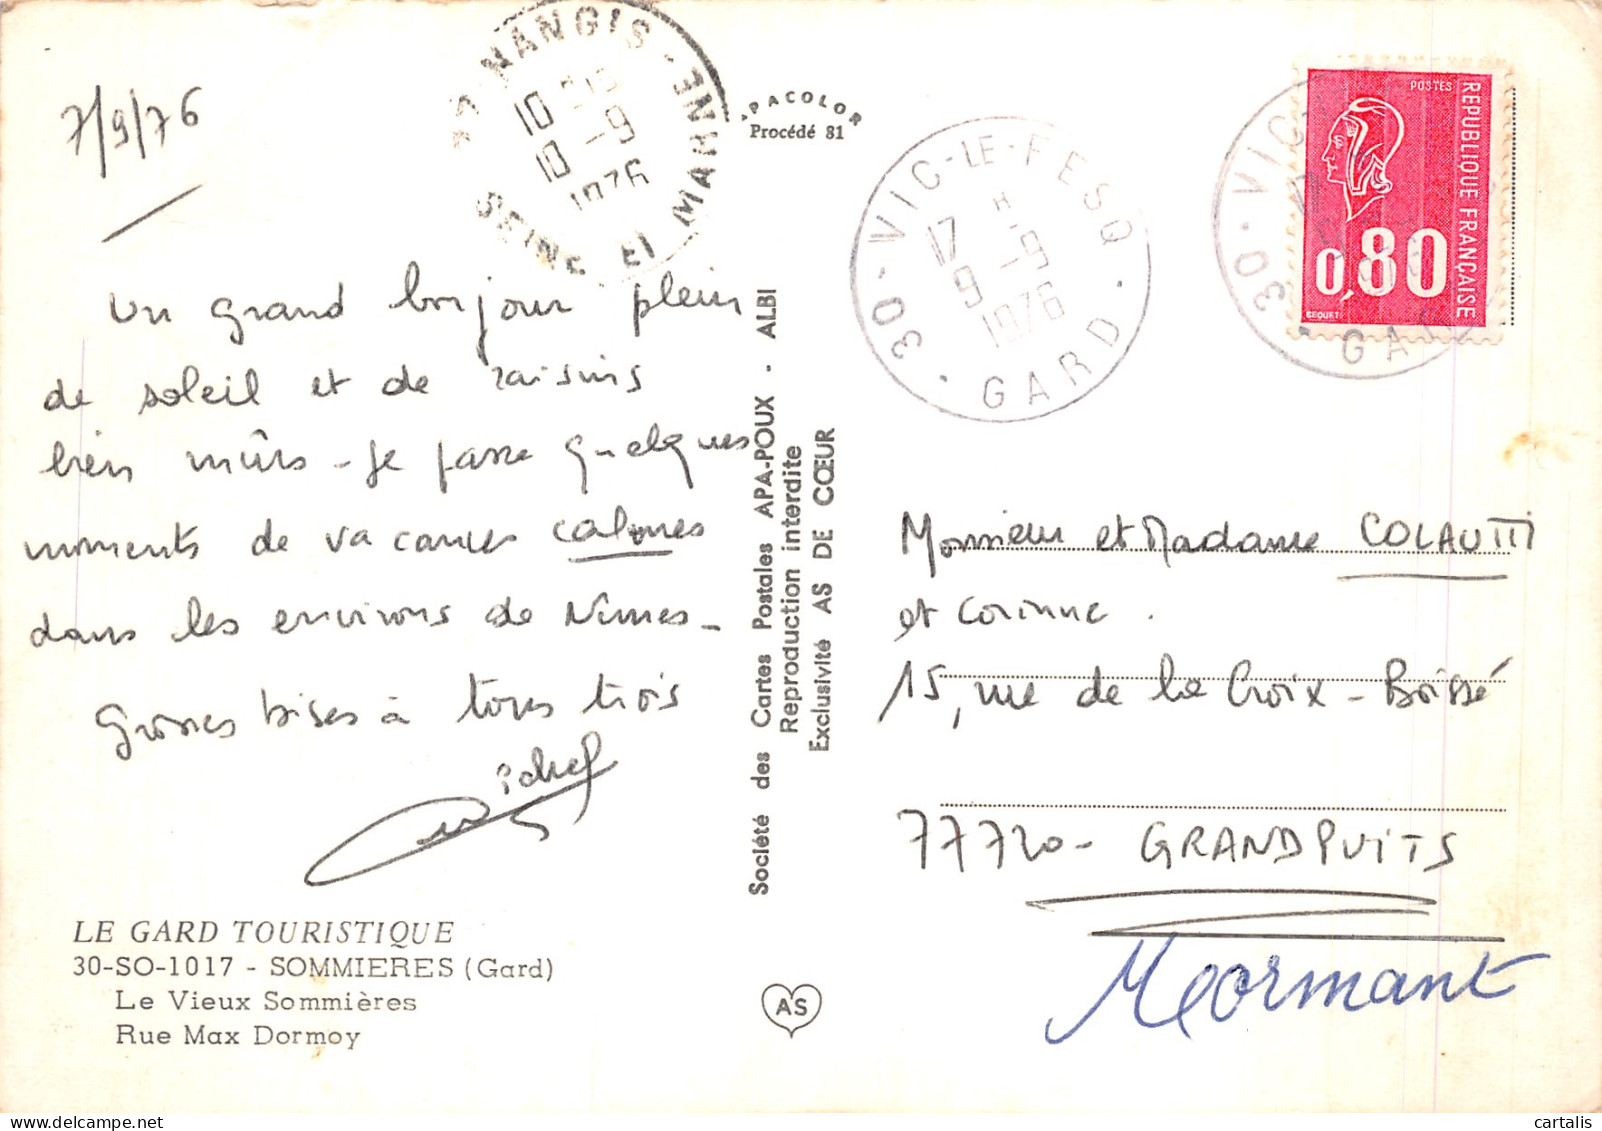 7/9/76
Un grand bonjour plein
de soleil et de raisins
bien mûrs - Je passe quelques
moments de vacances calmes
dans les environs de Nimes -
Grosses bises à tous trois
LE GARD TOURISTIQUE
30-SO-1017 - SOMMIERES (Gard)
Le Vieux Sommières
Rue Max Dormoy
77 NANGIS - SEINE ET MARNE
10 H 15
10 - 9
1976
APACOLOR
Procédé 81
Société des Cartes Postales APA-POUX - ALBI
Reproduction interdite
Exclusivité AS DE CŒUR
AS
30 - VIC-LE-FESQ - GARD
17 H
9 - 9
1976
30 - VIC
GARD
POSTES
REPUBLIQUE FRANÇAISE
0,80
BEQUET
Monsieur et Madame COLAUTTI
et Corinne.
15, rue de la Croix - Boissé
77720 - GRANDPUITS
Mormant
cartalis
www.delcampe.net